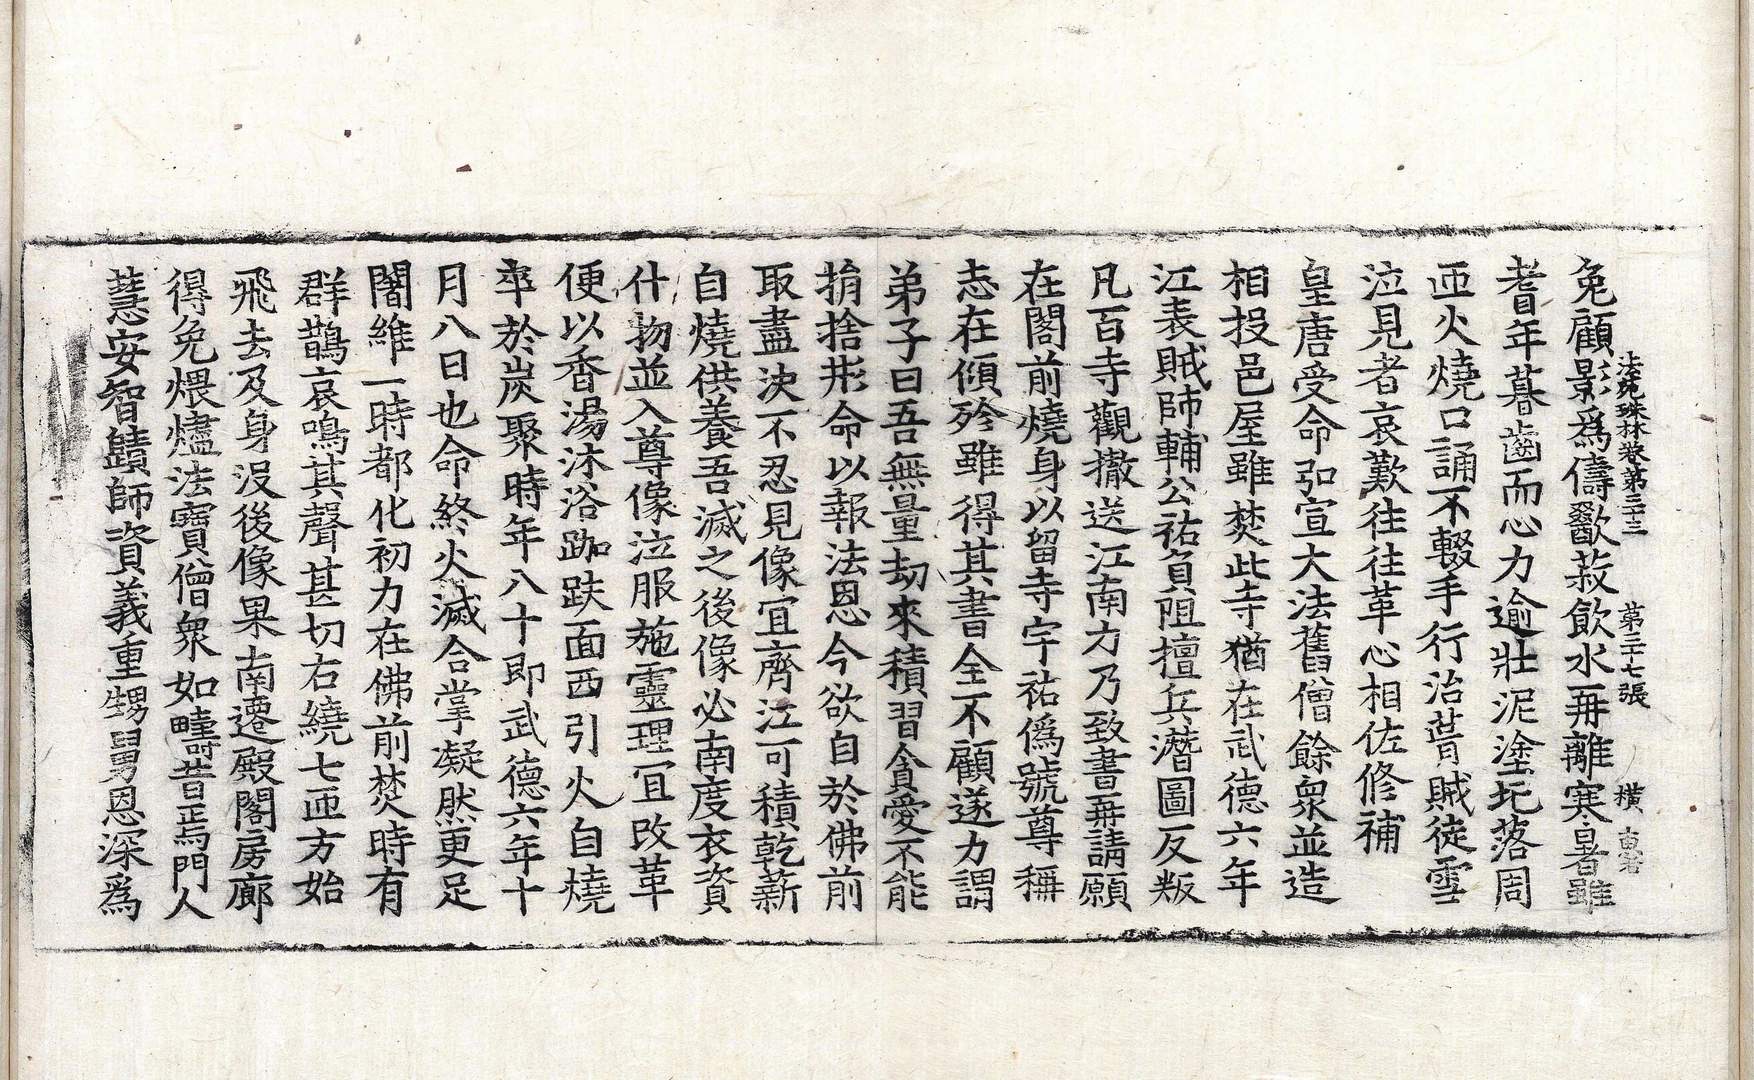 法苑珠林卷第三十三 第三十七張 橫
兔顧影為儔歠菽飲水再離寒暑雖
耆年暮齒而心力逾壯泥塗圮落周
匝火燒口誦不輟手行治葺賊徒雪
泣見者哀歎往往革心相佐修補
皇唐受命弘宣大法舊僧餘衆並造
相投邑屋雖焚此寺猶在武德六年
江表賊師輔公祏負阻擅兵潛圖反叛
凡百寺觀撤送江南方乃致書再請願
在閣前燒身以留寺宇祏偽號尊稱
志在傾殄雖得其書全不顧遂力謂
弟子曰吾無量劫來積習貪愛不能
捐捨形命以報法恩今欲自於佛前
取盡決不忍見像冝齊江可積乾薪
自燒供養吾滅之後像必南度衣資
什物並入尊像泣服施靈理冝改革
便以香湯沐浴跏趺面西引火自燒
卒於炭聚時年八十即武德六年十
月八日也命終火滅合掌凝然更足
闍維一時都化初力在佛前焚時有
群鵲哀鳴其聲甚切右繞七匝方始
飛去及身沒後像果南遷殿閣房廊
得免煨燼法寶僧衆如疇昔焉門人
慧安智賾師資義重甥舅恩深為